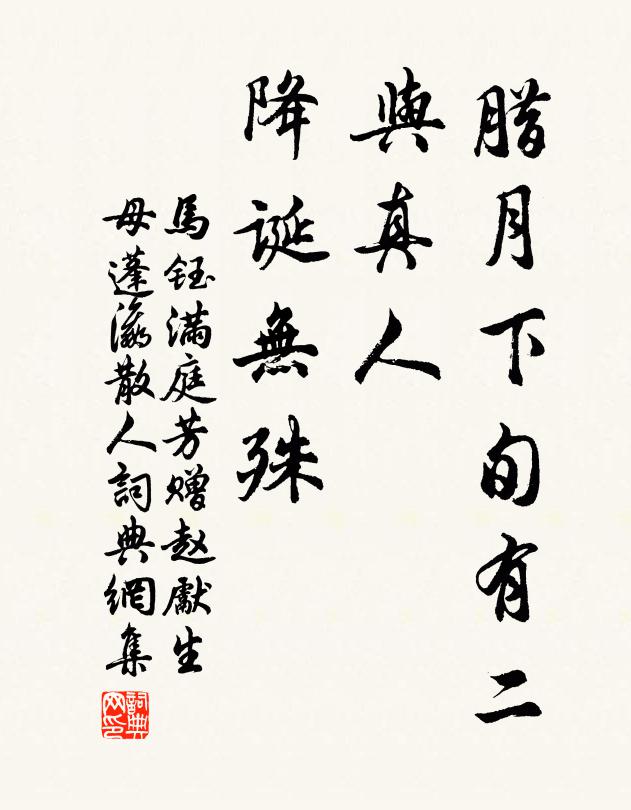 腊月下旬有二
與真人
降誕無殊
馬鈺滿庭芳赠赵獻生
母蓬瀛散人詞典網集
詞典网印